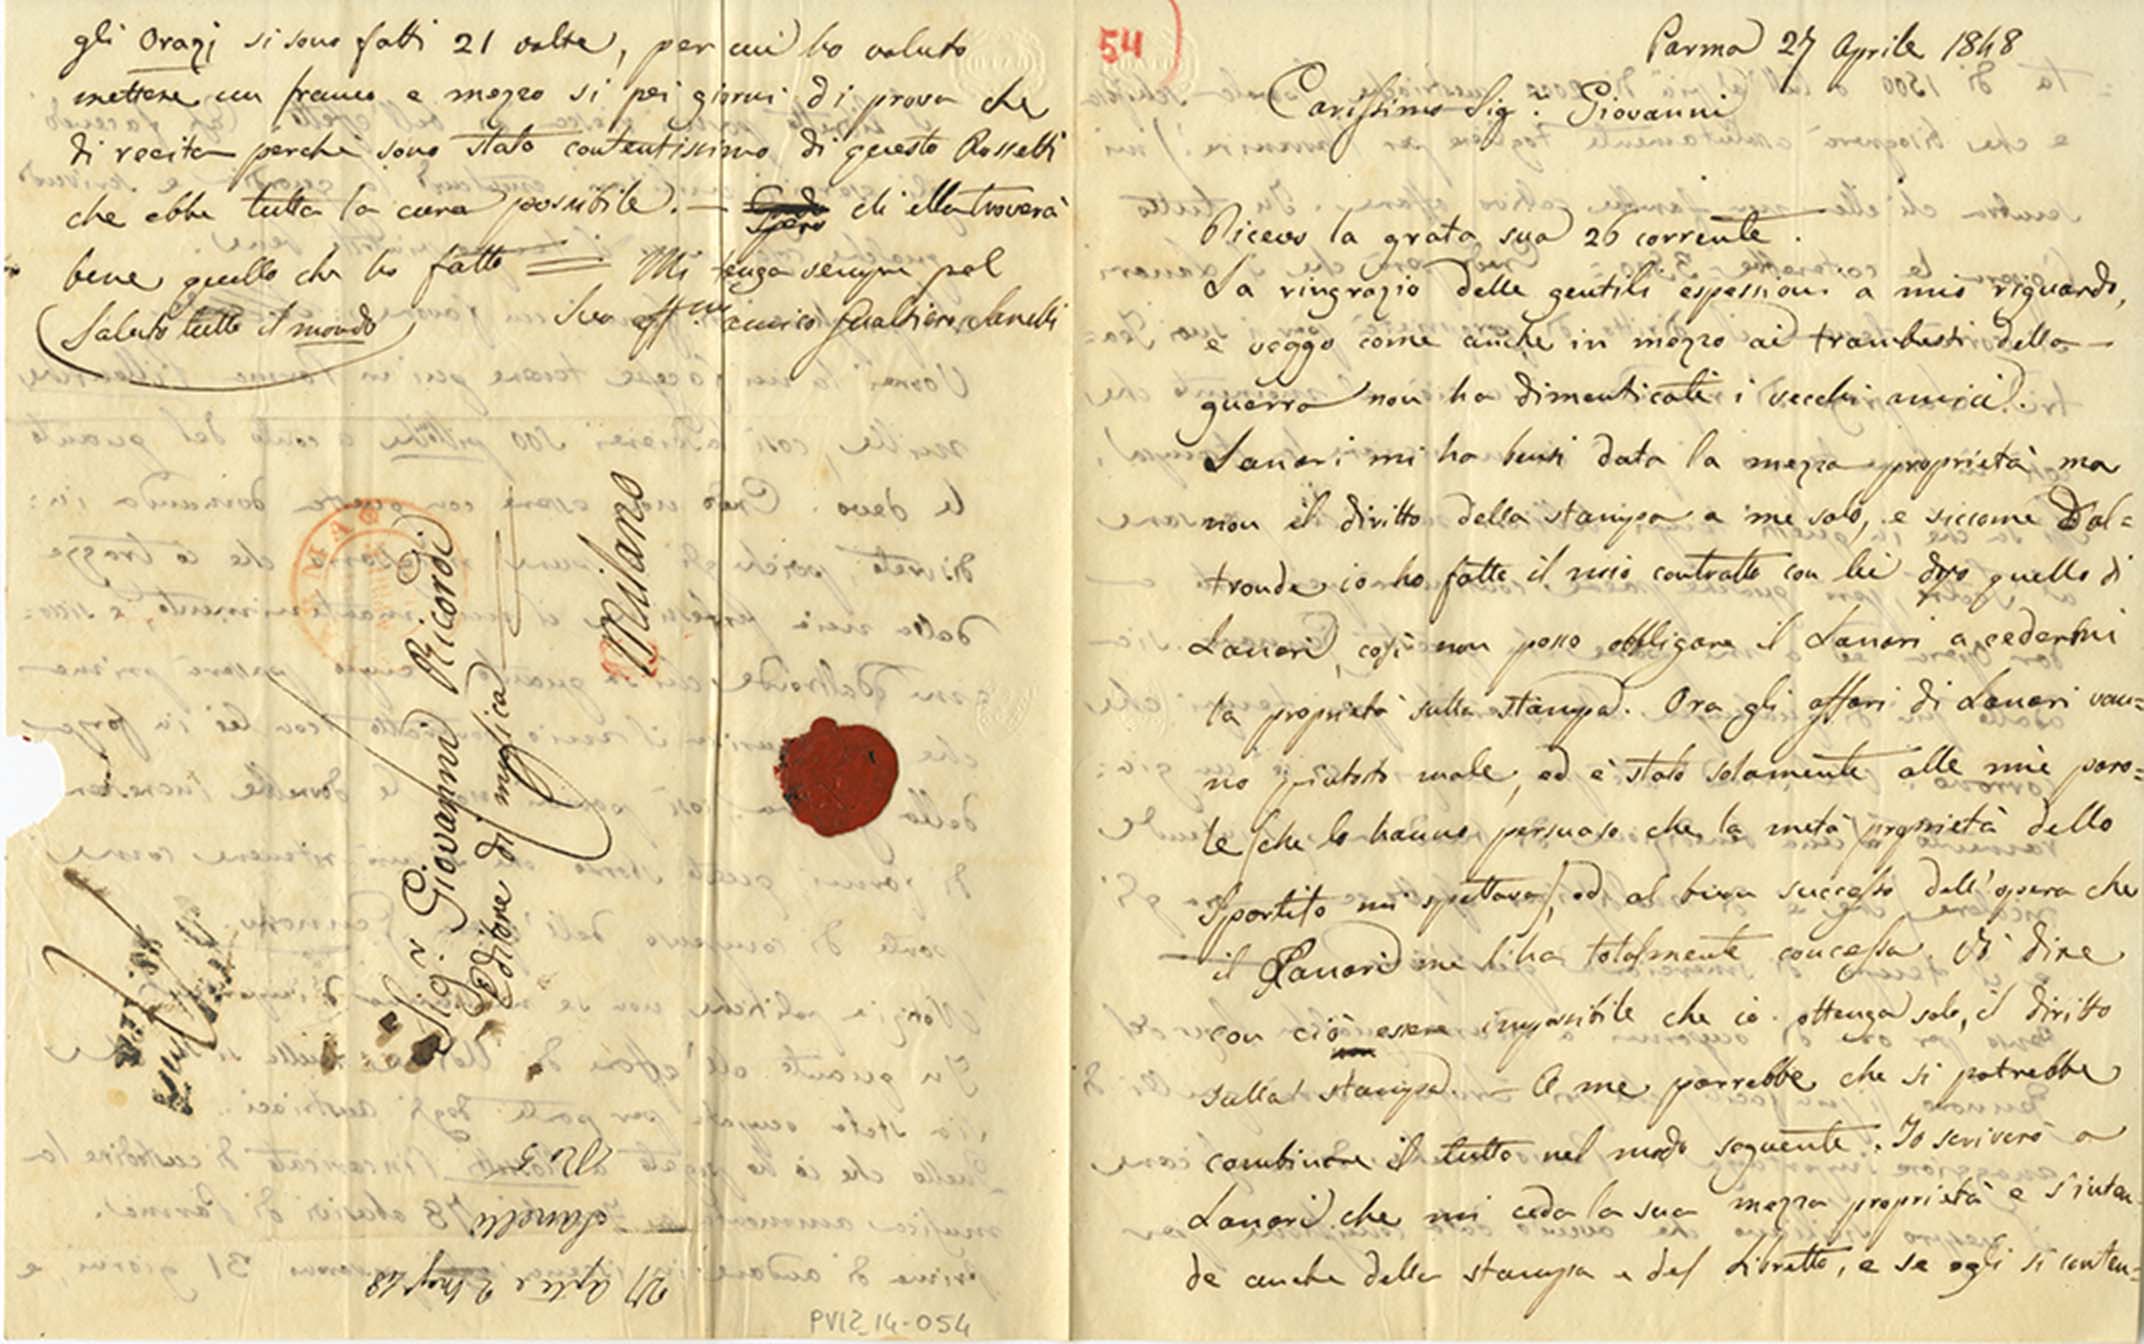 gli Orazj si sono fatti 21 volte, per cui ho voluto
mettere un franco e mezzo si pei giorni di prova che
di recita perchè sono stato contentissimo di questo Rossetti
che ebbe tutta la cura possibile. — Spero ch'ella troverà
bene quello che ho fatto == Mi tenga sempre pel
Suo aff.mo amico Gualtiero Sanelli
Saluto tutto il mondo
Sig.r Giovanni Ricordi
Editore di musica
Milano
Sanelli
N.° 5
PV12_14-054
54
Parma 27 Aprile 1848
Carissimo Sig.r Giovanni
Ricevo la grata sua 26 corrente.
La ringrazio delle gentili espessioni a mio riguardo,
e veggo come anche in mezzo ai trambusti della
guerra non ha dimenticati i vecchi amici.
Lanari mi ha bensi data la mezza proprietà ma
non il diritto della stampa a me solo, e siccome Dal=
tronde io ho fatto il mio contratto con lei dopo quello di
Lanari, così non posso obbligare il Lanari a cedermi
la proprietà sulla stampa. Ora gli affari di Lanari van=
no piutosto male, ed è stato solamente alle mie paro=
le (che lo hanno persuaso che la metà proprietà dello
Spartito mi spettava), ed al buon successo dell'opera che
il Lanari me l'ha totalmente concessa. Vi dire
con ciò essere impossibile che io ottenga solo, il diritto
sulla stampa. — A me parrebbe che si potrebbe
combinare il tutto nel modo seguente. Io scriverò a
Lanari che mi ceda la sua mezza proprietà e s'inten-
de anche della stampa e del Libretto, e se egli si conten=